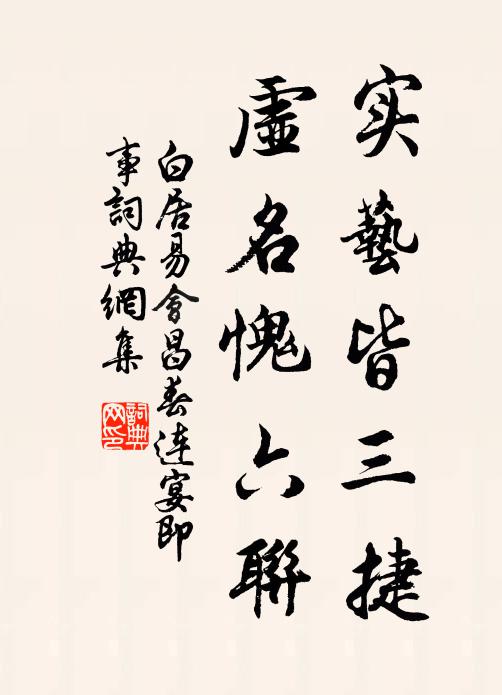 实藝皆三捷
虛名愧六聯
白居易會昌春连宴即
事詞典網集
詞典
网印